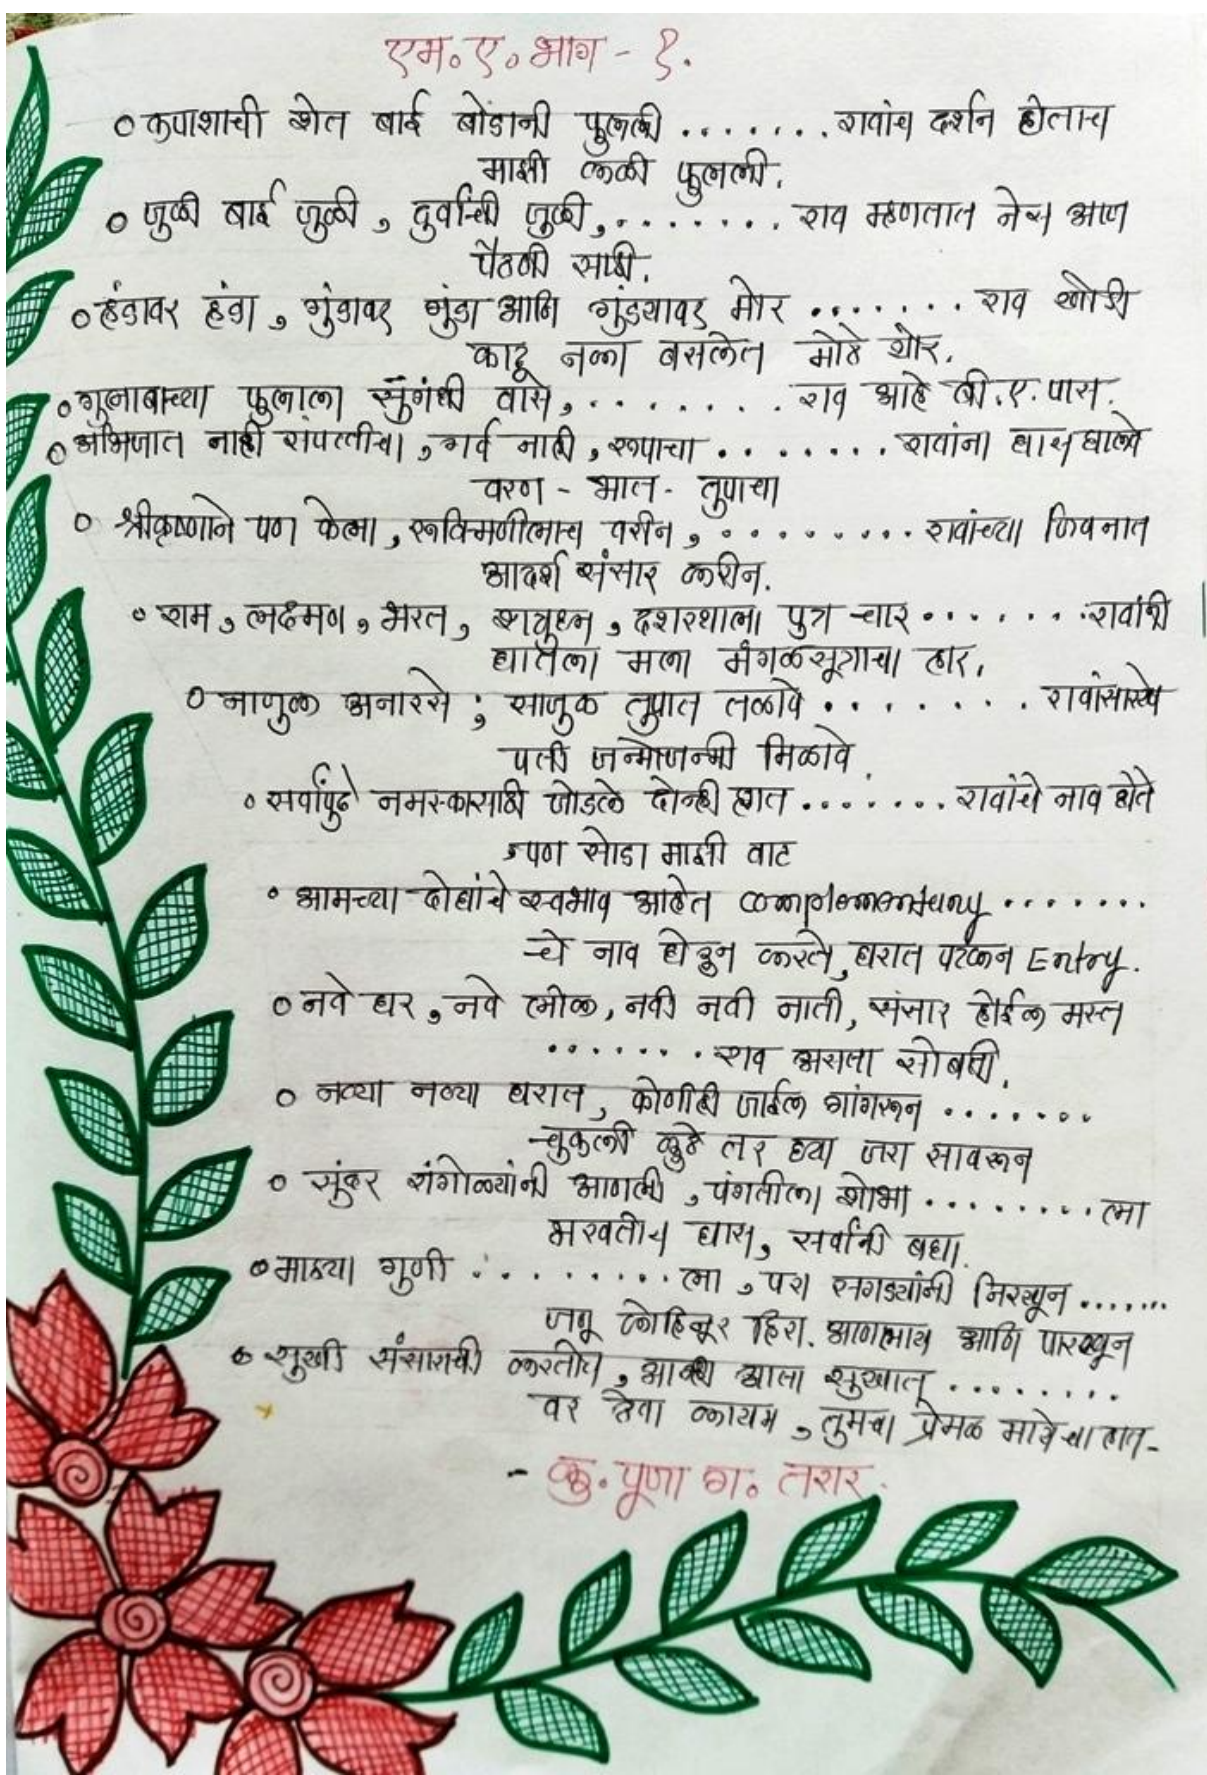 एम. ए. भाग - १.
० कपाशाची शेत बाई बोंडानी फुलली ........ रावांच दर्शन होताच
माझी कळी फुलली.
० जुळी बाई जुळी, दुर्वांची जुळी, ........ राव म्हणतात नेस आण
पैठणी साडी.
० हंडावर हंडा, गुंडावर गुंडा आणि गुंड्यावर मोर ....... राव खोडी
काढू नका बसलेत मोठे थोर.
० गुलाबाच्या फुलाला सुगंधी वास, ........ राव आहे बी.ए. पास.
० अभिजात नाही संपत्तीचा, गर्व नाही, रूपाचा ........ रावांना घास घालते
वरण - भात - तुपाचा
० श्रीकृष्णाने पण केला, रूक्मिणीलाच वरीन, ......... रावांच्या जिवनात
आदर्श संसार करीन.
० राम, लक्ष्मण, भरत, शत्रुघ्न, दशरथाला पुत्र चार ........ रावांनी
घातला मला मंगळसूत्राचा हार.
० नाजुक अनारसे ; साजुक तुपात तळावे ........ रावांसारखे
पती जन्मोजन्मी मिळावे.
० सर्वांपुढे नमस्कारासाठी जोडले दोन्ही हात ....... रावांचे नाव घेते
, पण सोडा माझी वाट
० आमच्या दोघांचे स्वभाव आहेत complementary .......
चे नाव घेऊन करते, घरात पटकन Entry.
० नवे घर, नवे लोक, नवी नवी नाती, संसार होईल मस्त
....... राव असता सोबती.
० नव्या नव्या घरात, कोणीही जाईल गांगरून .......
चुकली कुठे तर घ्या जरा सावरून
० सुंदर रांगोळ्यांनी आणली, पंगतीला शोभा ......... ला
भरवतीय घास, सर्वांनी बघा.
० माझ्या गुणी ......... ला, पहा सगळ्यांनी निरखून .......
जणू कोहिनूर हिरा. आणलाय आणि पारखून
० सुखी संसाराची करतीय, आता सुखात ........
वर ठेवा कायम, तुमचा प्रेमळ मायेचा हात-
- कु. पूजा ग. तरार.